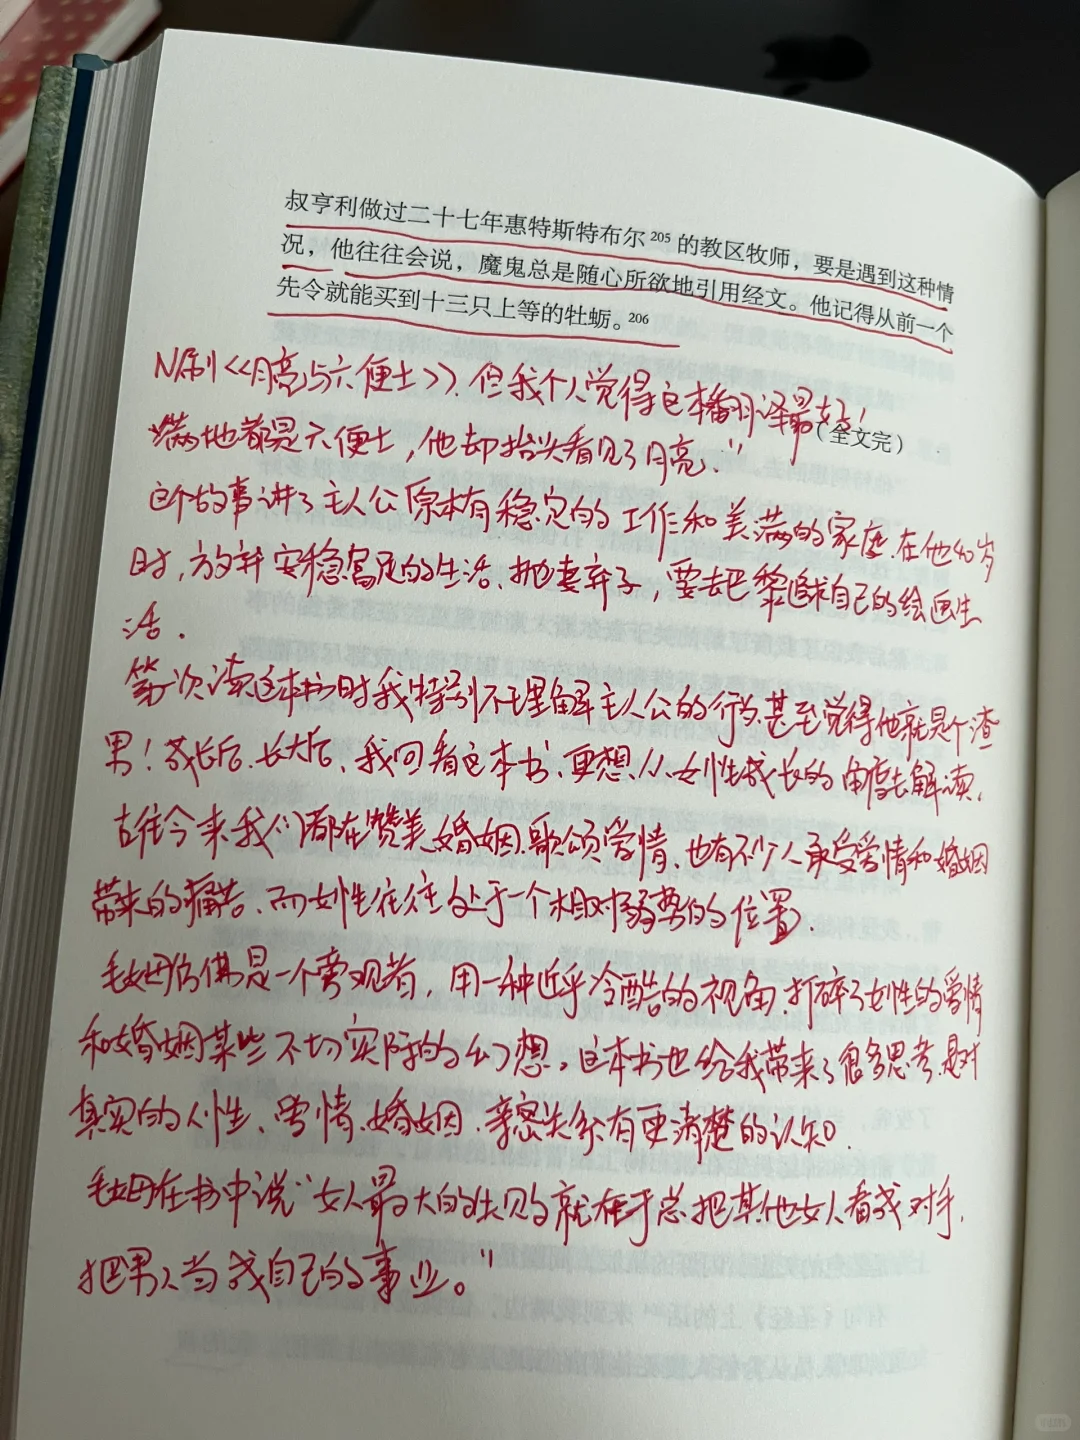 叔亨利做过二十七年惠特斯特布尔205的教区牧师，要是遇到这种情
况，他往往会说，魔鬼总是随心所欲地引用经文。他记得从前一个
先令就能买到十三只上等的牡蛎。206
N刷《月亮与六便士》.但我个人觉得这本翻译最好!
（全文完）
"满地都是六便士，他却抬头看见了月亮."
这个故事讲了主人公原本有稳定的工作和美满的家庭.在他40岁
时，放弃安稳富足的生活.抛妻弃子，要去巴黎追求自己的绘画生
活.
第一次读这本书时我特别不理解主人公的行为.甚至觉得他就是个渣
男！成长后、长大后、我回看这本书、更想从女性成长的角度去解读.
古往今来我们都在赞美婚姻.歌颂爱情、也有不少人承受爱情和婚姻
带来的痛苦、而女性往往处于一个相对弱势的位置.
毛姆仿佛是一个旁观者，用一种近乎冷酷的视角.打碎了女性的爱情
和婚姻某些不切实际的幻想。这本书也给我带来了很多思考.是对
真实的人性、爱情.婚姻.亲密关系有更清楚的认知.
毛姆在书中说"女人最大的失败就在于总把其他女人看成对手.
把男人当成自己的事业。"